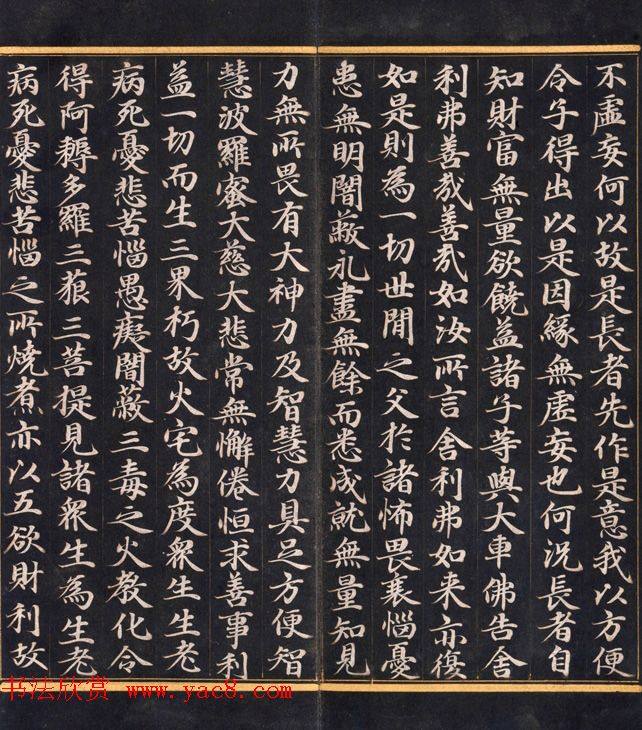 不虛妄何以故是長者先作是意我以方便
令子得出以是因緣無虛妄也何況長者自
知財富無量欲饒益諸子等與大車佛告舍
利弗善哉善哉如汝所言舍利弗如来亦復
如是則為一切世間之父於諸怖畏衰惱憂
患無明闇蔽永盡無餘而悉成就無量知見
力無所畏有大神力及智慧力具足方便智
慧波羅蜜大慈大悲常無懈倦恒求善事利
益一切而生三界朽故火宅為度眾生生老
病死憂悲苦惱愚癡闇蔽三毒之火教化令
得阿耨多羅三藐三菩提見諸眾生為生老
病死憂悲苦惱之所燒煮亦以五欲財利故
书法欣赏 www.yac8.com